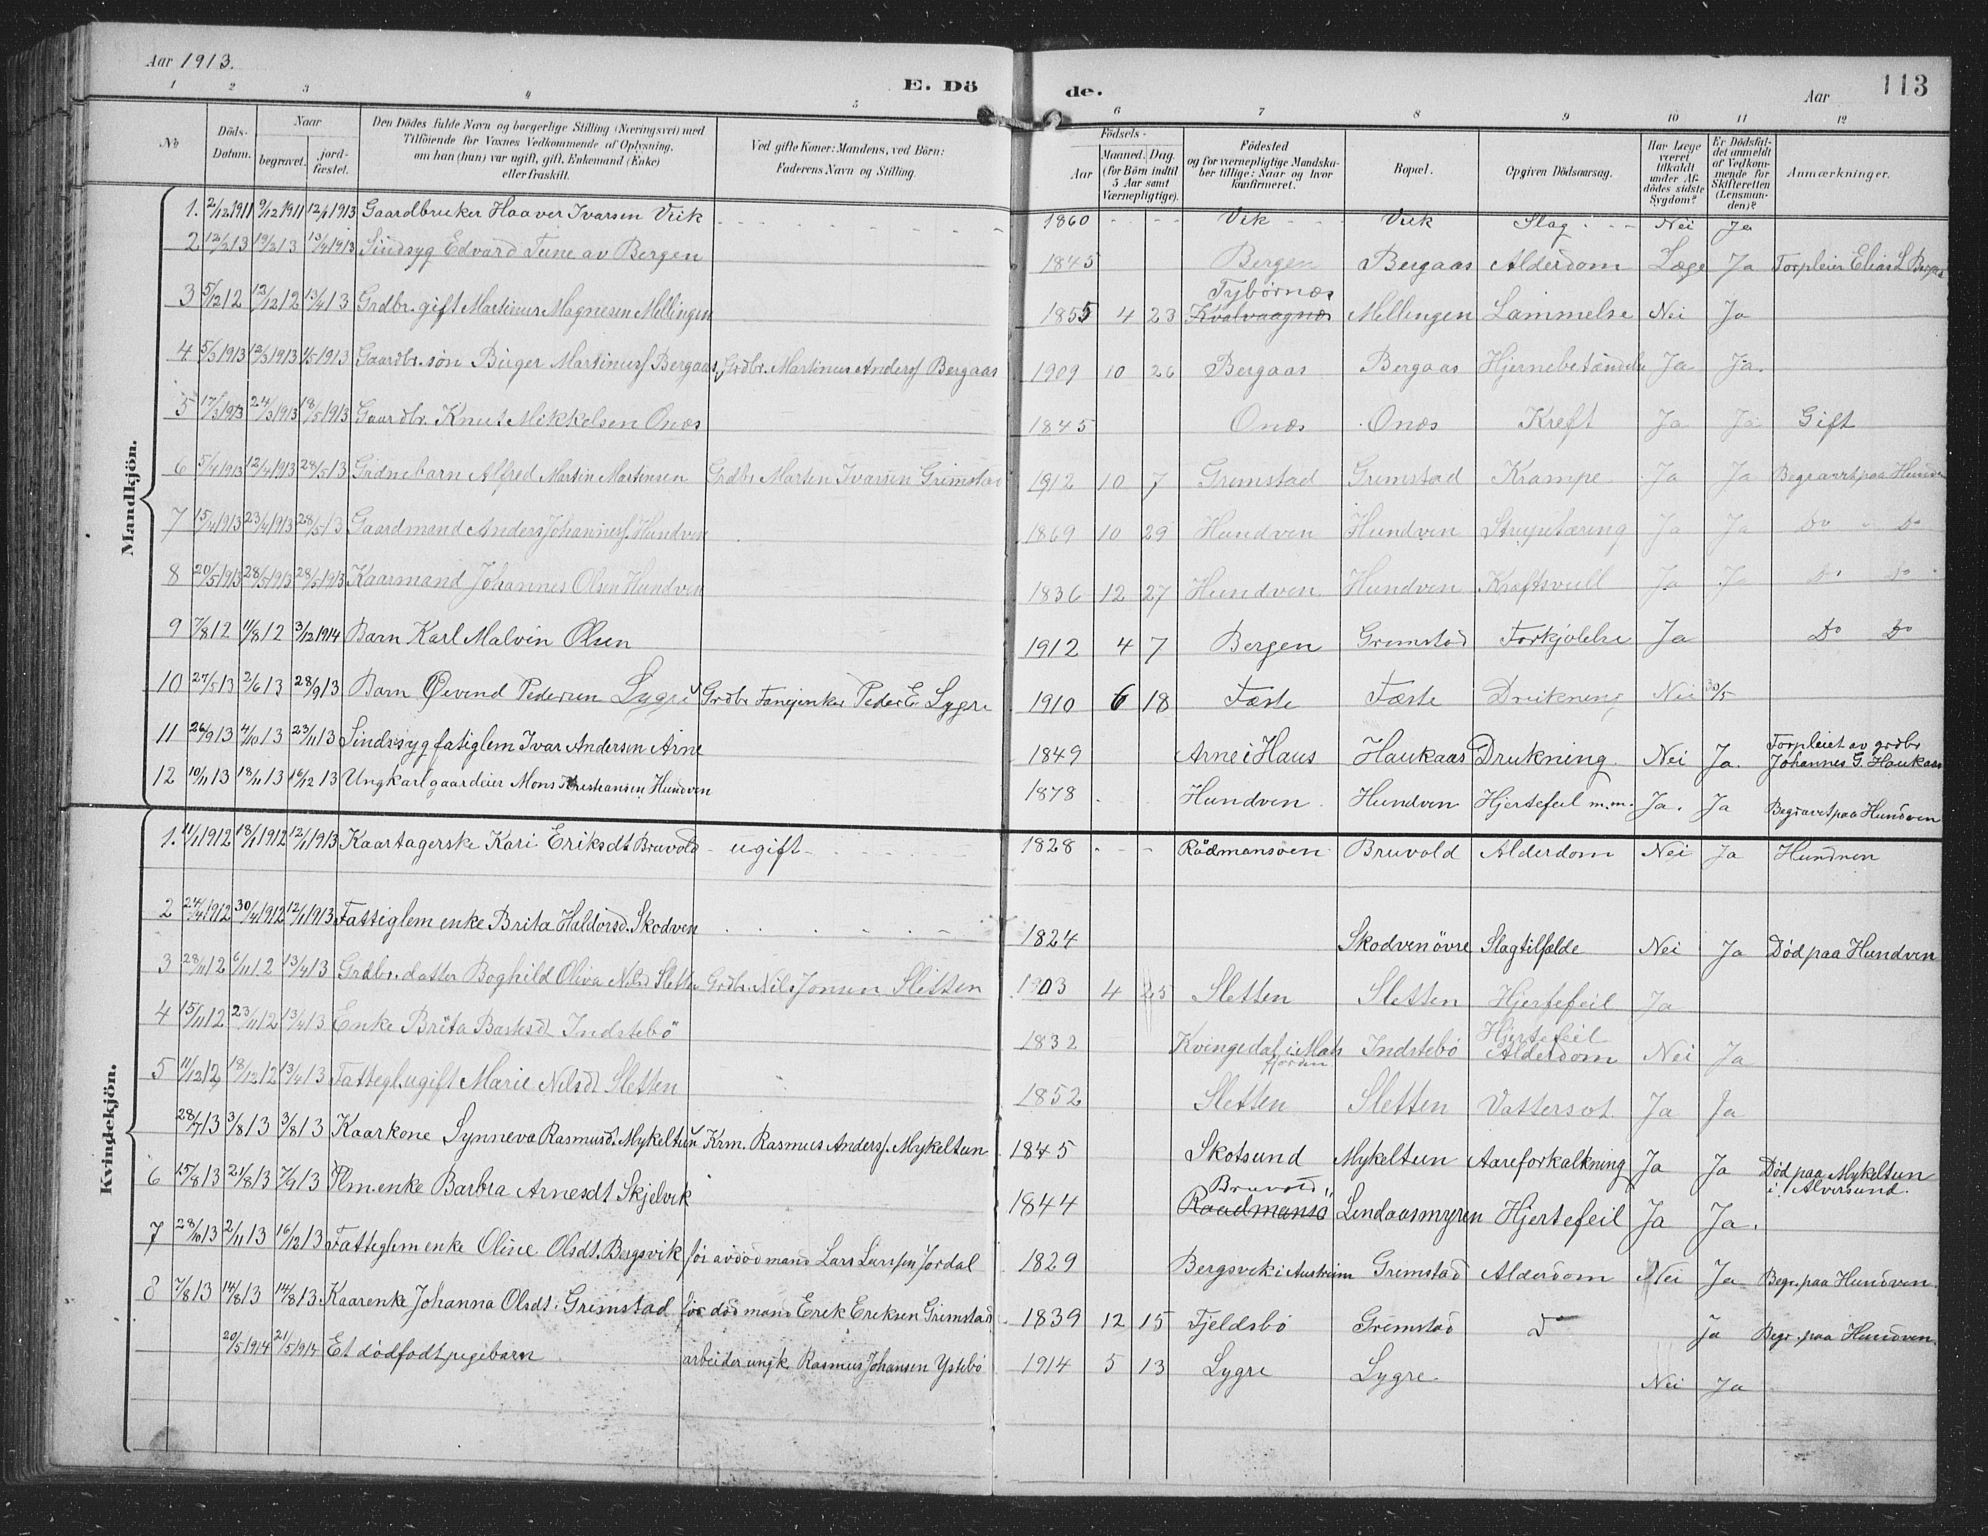 Aar 1913.
E. Dö de.
Aar 113
1 2 3 4 5 6 7 8 9 10 11 12
No
Döds-Datum.
Naar
begravet.
jord-fæstet.
Den Dödes fulde Navn og borgerlige Stilling (Næringsvei) med
Tilföiende for Voxnes Vedkommende af Oplysning,
om han (hun) var ugift, gift, Enkemand (Enke)
eller fraskilt.
Ved gifte Koner: Mandens, ved Börn:
Faderens Navn og Stilling.
Födsels-
Aar
Maaned. Dag.
(for Börn indtil
5 Aar samt
Værnepligtige).
Födested
og for værnepligtige Mandska-
ber tillige: Naar og hvor
konfirmeret.
Bopæl.
Opgiven Dödsaarsag.
Har Læge
været
tilkaldt
under Af-
dödes sidste
Sygdom?
Er Dödsfal-
det anmeldt
af Vedkom-
mende for
Skifteretten
(Lensman-
den)?
Anmærkninger.
Mandkjön.
1. 2/12 1911 9/12 1911 12/1 1913 Gaardbruker Haaver Ivarsen Vik 1860 Vik Vik Slag Nei Ja
2 12/2 13 19/2 13 13/4 1913 Sindsyg Edvard Tune av Bergen 1845 Bergen Bergaas Alderdom Læge Ja Forpleier Elias L
3 5/12 12 12/12 12 13/4 13 Grdbr. gift Martinus Magnesen Mellingen 1855 4 23 Kvalvaagnes Mellingen Lammelse Nei Ja
4 5/3 1913 12/3 1913 1/5 1913 Gaardbr. søn Birger Martinuss Bergaas Grdbr. Martinus Anders Bergaas 1909 10 26 Bergaas Bergaas Hjernebetændelse Ja Ja
5 17/3 1913 24/3 1913 18/5 1913 Gaardbr. Knut Mikkelsen Onæs 1845 Onæs Onæs Kreft Ja Ja Gift
6 5/4 1913 12/4 1913 28/5 13 Alfred Martin Martinsen Grdbr. Martin Ivarsen Grimstad 1912 10 7 Grimstad Grimstad Krampe Ja Ja Begravet paa Hundv
7 15/4 1913 23/4 1913 28/5 13 Gaardmand Anders Johanness. Hundven 1869 10 29 Hundven Hundven Strupetæring Ja Ja Do Do
8 20/5 1913 28/5 1913 28/5 1913 Kaarmand Johannes Olsen Hundven 1836 12 27 Hundven Hundven Kræftsvull Ja Ja Do Do
9 7/8 12 11/8 12 3/12 1914 Barn Karl Malvin Olsen 1912 4 7 Bergen Grimstad Forkjølelse Ja Do Do
10 27/5 13 2/6 13 28/9 13 Barn Øivend Pedersen Lygre Grdbr. Peder E. Lygre 1910 6 18 Fæste Fæste Drukning Nei 30/5
11 26/9 13 4/10 13 23/11 13 Sindssyg fatiglem Ivar Andersen Arne 1849 Arne i Haus Haukaas Drukning. Nei Ja. Forpleiet av grdbr Johannes G. Haukaas
12 10/11 13 18/11 13 16/12 13 Ungkarl gaardeier Mons Kristiansen Hundven 1878 Hundven Hundven Hjertefeil m.m. Ja. Ja Begravet paa Hundven
Kvindekjön.
1. 11/1 1912 18/1 1912 12/1 1913 Kari Eriksdt Bruvold ugift 1828 Rådmansøen Bruvold Alderdom Nei Ja Hundven
2 24/4 1912 30/4 1912 12/1 1913 Fattiglem enke Brita Haldorsd. Skodven 1824 Skodven øvre Slagtilfælde Nei Ja Død paa Hundven
3 28/11 12 6/11 12 13/4 13 Grdbr. datter Boghild Oliva Nilsd Sletten Grdbr. Nils Jonsen Sletten 1903 4 25 Sletten Sletten Hjertefeil Ja
4 15/11 12 23/11 12 13/4 13 Enke Brita Indstebö 1832 Kvingedal i Masfjorden Indstebö Hjertefeil Alderdom Nei Ja
5 11/12 12 18/12 12 13/4 13 Fattegl. ugift Marie Nilsdt Sletten 1852 Sletten Sletten Vattersot Ja Ja
28/7 13 3/8 13 3/8 13 Kaarkone Synneva Rasmusd. Mykeltun Krm. Rasmus Anderss. Mykeltun 1845 Skotsund Mykeltun Aareforkalkning Ja Ja Død paa Mykeltun i Alversund.
6 15/8 13 21/8 13 7/9 13 Plm. enke Barbra Arnesdt Skjelvik 1844 Bruvold Raadmansø Lindaasmyren Hjertefeil Ja Ja.
7 28/10 13 2/11 13 16/12 13 Fattiglem enke Oline Olsdt. Bergsvik for avdød mand Lars Larssen Jordal 1829 Bergsvik i Austrheim Grimstad Alderdom Nei Ja Begr. paa Hundven
8 7/8 13 14/8 13 14/8 13 Kaarenke Johanna Olsdt. Grimstad for død mand Erik Eriksen Grimstad 1839 12 15 Fjeldsbö Grimstad Do Ja Begr. paa Hundven
20/5 1914 21/5 1914 Et dødfødt pigebarn arbeider ungk. Rasmus Johansen Ystebö 1914 5 13 Lygre Lygre Nei Ja